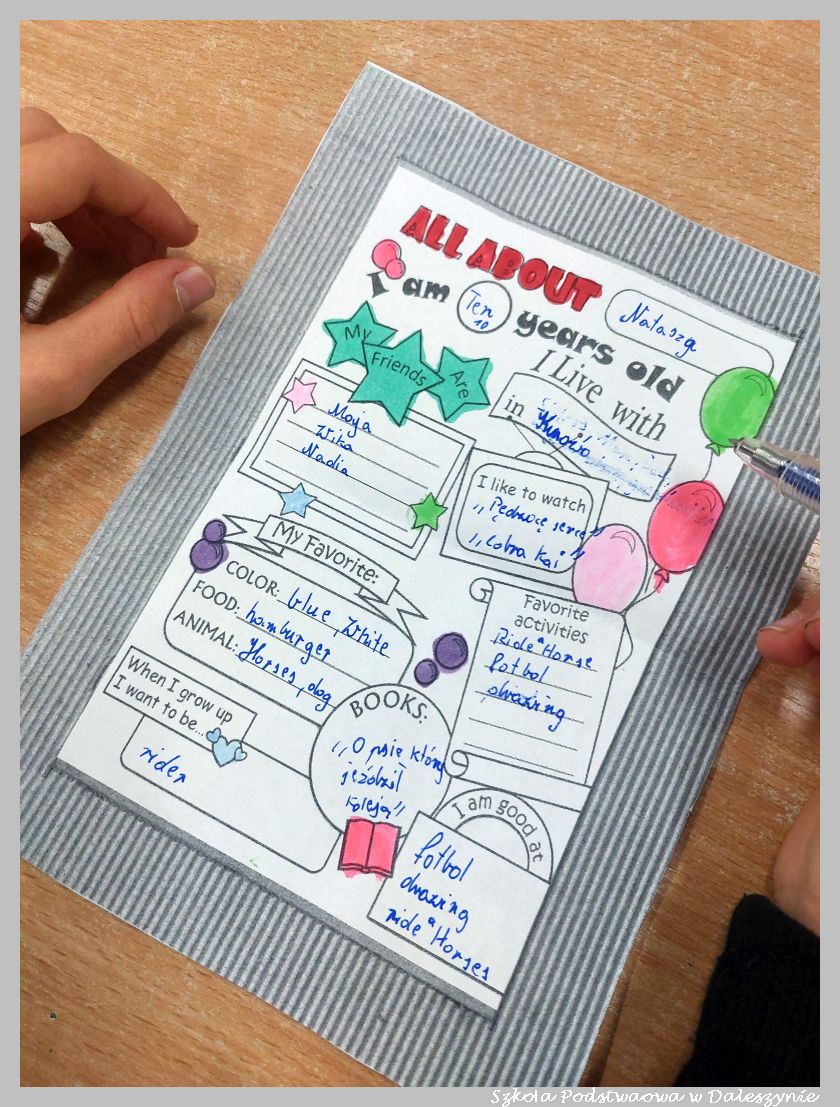 ALL ABOUT
Natasza
I am Ten 10 years old
My Friends Are
Maja
Wika
Nadia
I Live with
in Kunowo
I like to watch
„Pędzące serce”
„Cobra Kai”
My Favorite:
COLOR: blue, White
FOOD: hamburger
ANIMAL: Horses, dog
Favorite activities
Ride a Horse
fotbol
drazing
When I grow up
I want to be...
rider
BOOKS:
„O psie który
jeździł
koleją”
I am good at
fotbol
drazing
ride a Horses
Szkoła Podstwaowa w Daleszynie